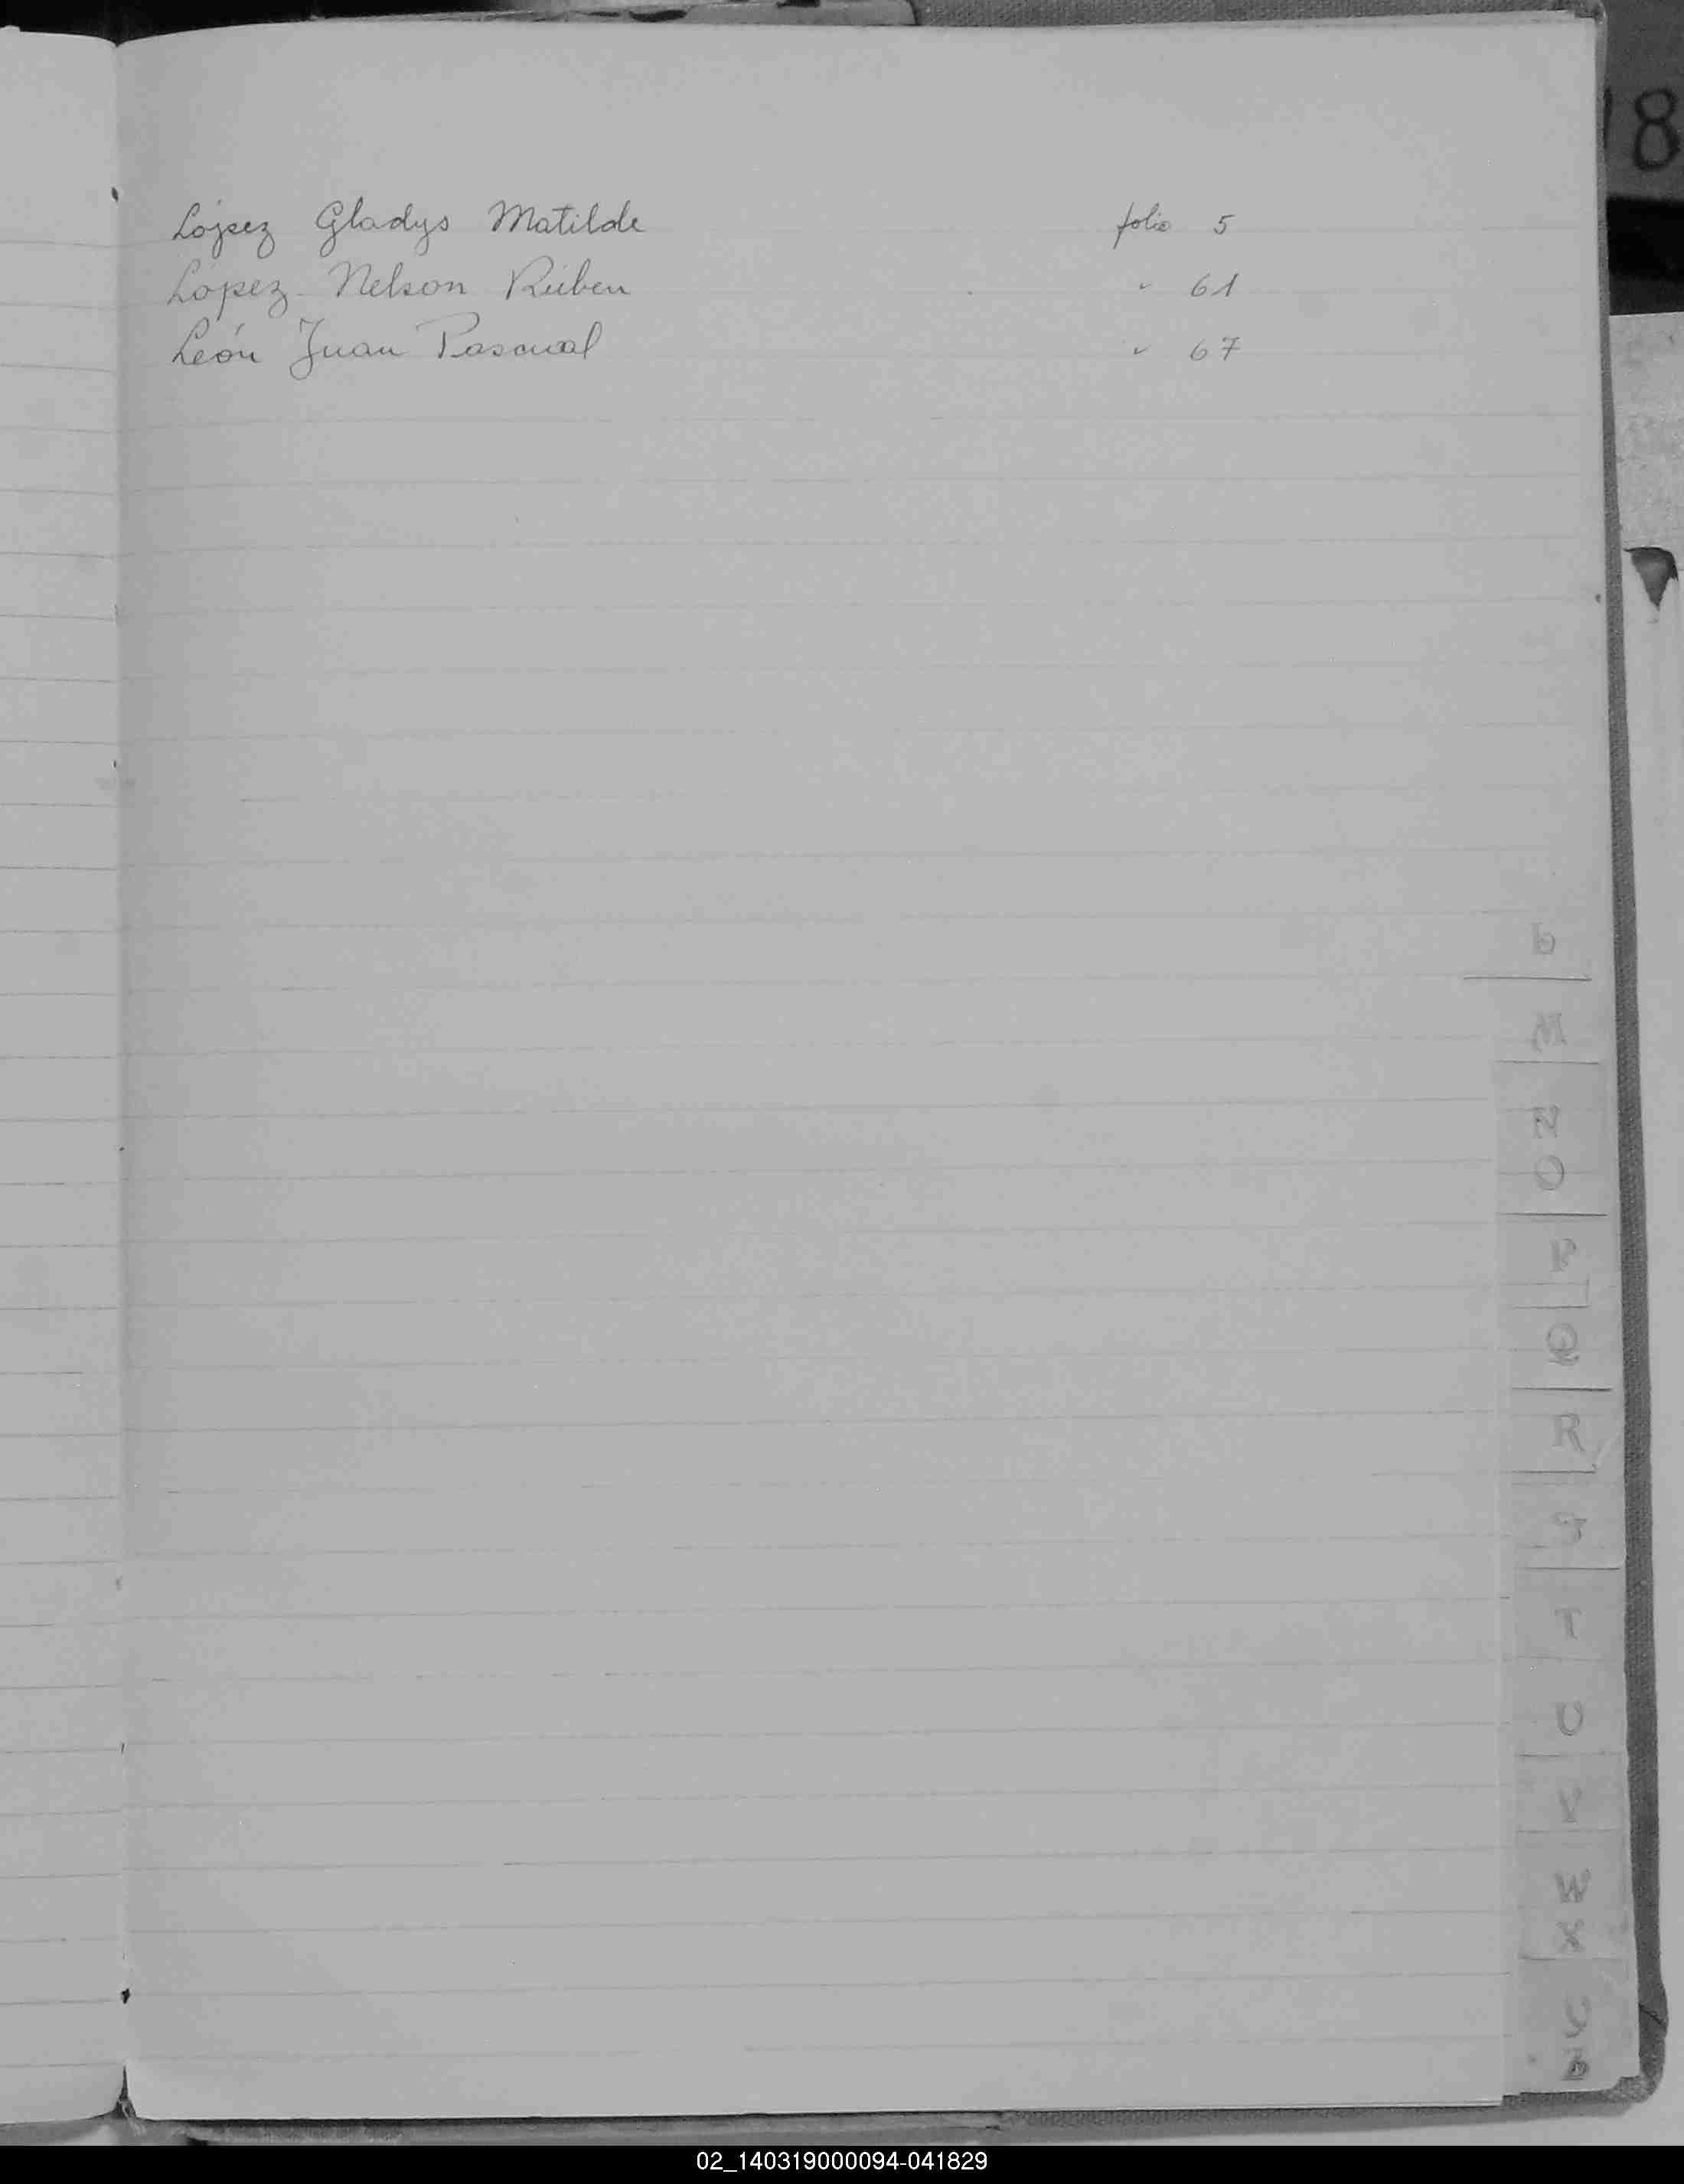 López Gladys Matilde folio 5
López Nelson Ruben " 61
León Juan Pascual " 67
18
M
N
O
P
Q
R
S
T
U
V
W
X
02_140319000094-041829